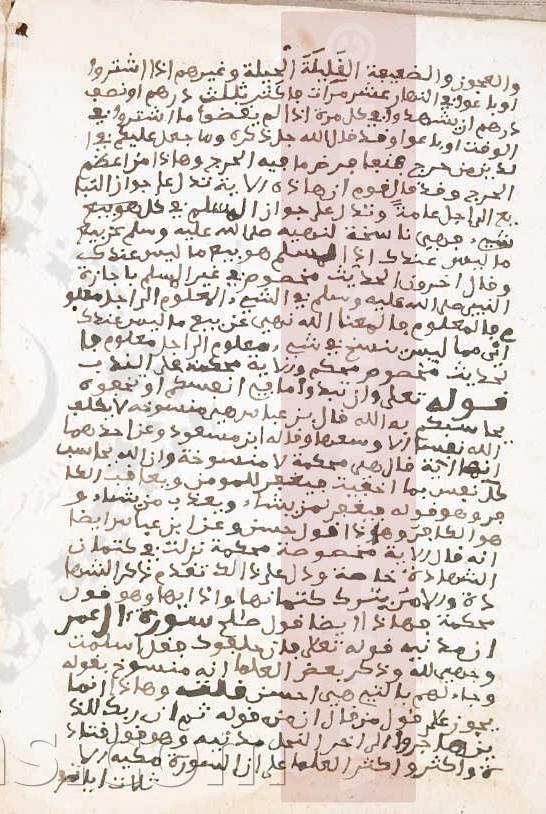 والعجوز والضعيفة القليلة الحيلة وغيرهم اذا اشتروا
او باعوا في النهار عشر مرات فاكثر بثلث درهم او نصف
درهم ان يشهدوا في كل مرة اذا لم يقضوا ما اشتروا في
الوقت او باعوا وقد قال الله جل ذكره وما جعل عليكم في ا
لدين من حرج فمنعا من فرض ما فيه الحرج وهاذا من اعظم
الحرج وقد قال قوم ان هاذه الاية تدل على جواز التبا
يع الى اجل عامة وتدل على جواز السلم في كل هو بيع
شيء فهي ناسخة لنهيه صلى الله عليه وسلم عن بيع
ما ليس عندك اذ السلم هو بيع ما ليس عندك
وقال اخرون الحديث مخصوص في غير السلم باجازة
النبي صلى الله عليه وسلم في الشيء المعلوم الى اجل معلو
م فالمعلوم فالمعنا الله نهى عن بيع ما ليس عندك
اتى مما ليس بنسخ في شيء معلوم الى اجل معلوم فا
لحديث مخصوص محكم والاية محكمة على الندب
قوله تعلى وان تبدوا ما في انفسكم او تخفوه
يحاسبكم به الله قال بن عباس هي منسوخة لا يكلف
الله نفسا الا وسعها وقاله ابن مسعود وعن احدهما
انها اية قال هي محكمة لا منسوخة وان الله يحاسب
كل نفس بما اخفيت فيغفر للمومن ويعاقب الكا
فر وهو قوله فيغفر لمن يشاء ويعذب من يشاء و
هو الكافر وهاذا قول حسن وعن ابن عباس ايضا
انه قال الاية مخصوصة محكمة نزلت في كتمان
الشهادة خاصة ودل على ذالك تقدم ذكر الشها
دة والامر بترك كتمانها واذا بها وهو قول
محكمة فهاذا ايضا قول صلح سورة ال عمر
ان مدنيه قوله تعلى فان حاجوك فقل اسلمت
وجهي لله وذكر بعض العلما انه منسوخ بقوله
وجادلهم بالتي هي احسن قلت وهاذا انما
يجوز على قول من قال ان من قوله ثم ان ربك للذ
ين هاجروا الى اخر النحل مدنيه وهو قول قتاد
ة واكثر واكثر العلما على ان السورة مكيه الا
ثلاث ايات